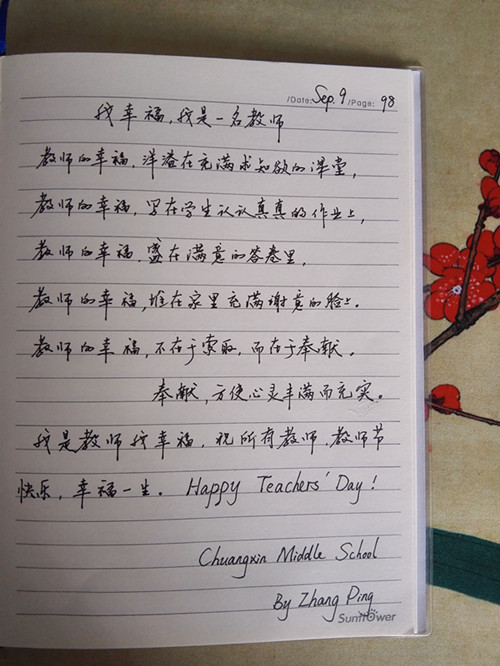 /Date: Sep. 9 /Page: 98
我幸福,我是一名教师
教师的幸福,洋溢在充满求知欲的课堂,
教师的幸福,写在学生认认真真的作业上,
教师的幸福,盛在满意的答卷里,
教师的幸福,堆在家里充满谢意的脸上.
教师的幸福,不在于索取,而在于奉献.
奉献,方使心灵丰满而充实。
我是教师我幸福,祝所有教师,教师节
快乐,幸福一生. Happy Teachers' Day!
Chuangxin Middle School
By Zhang Ping
Sunflower